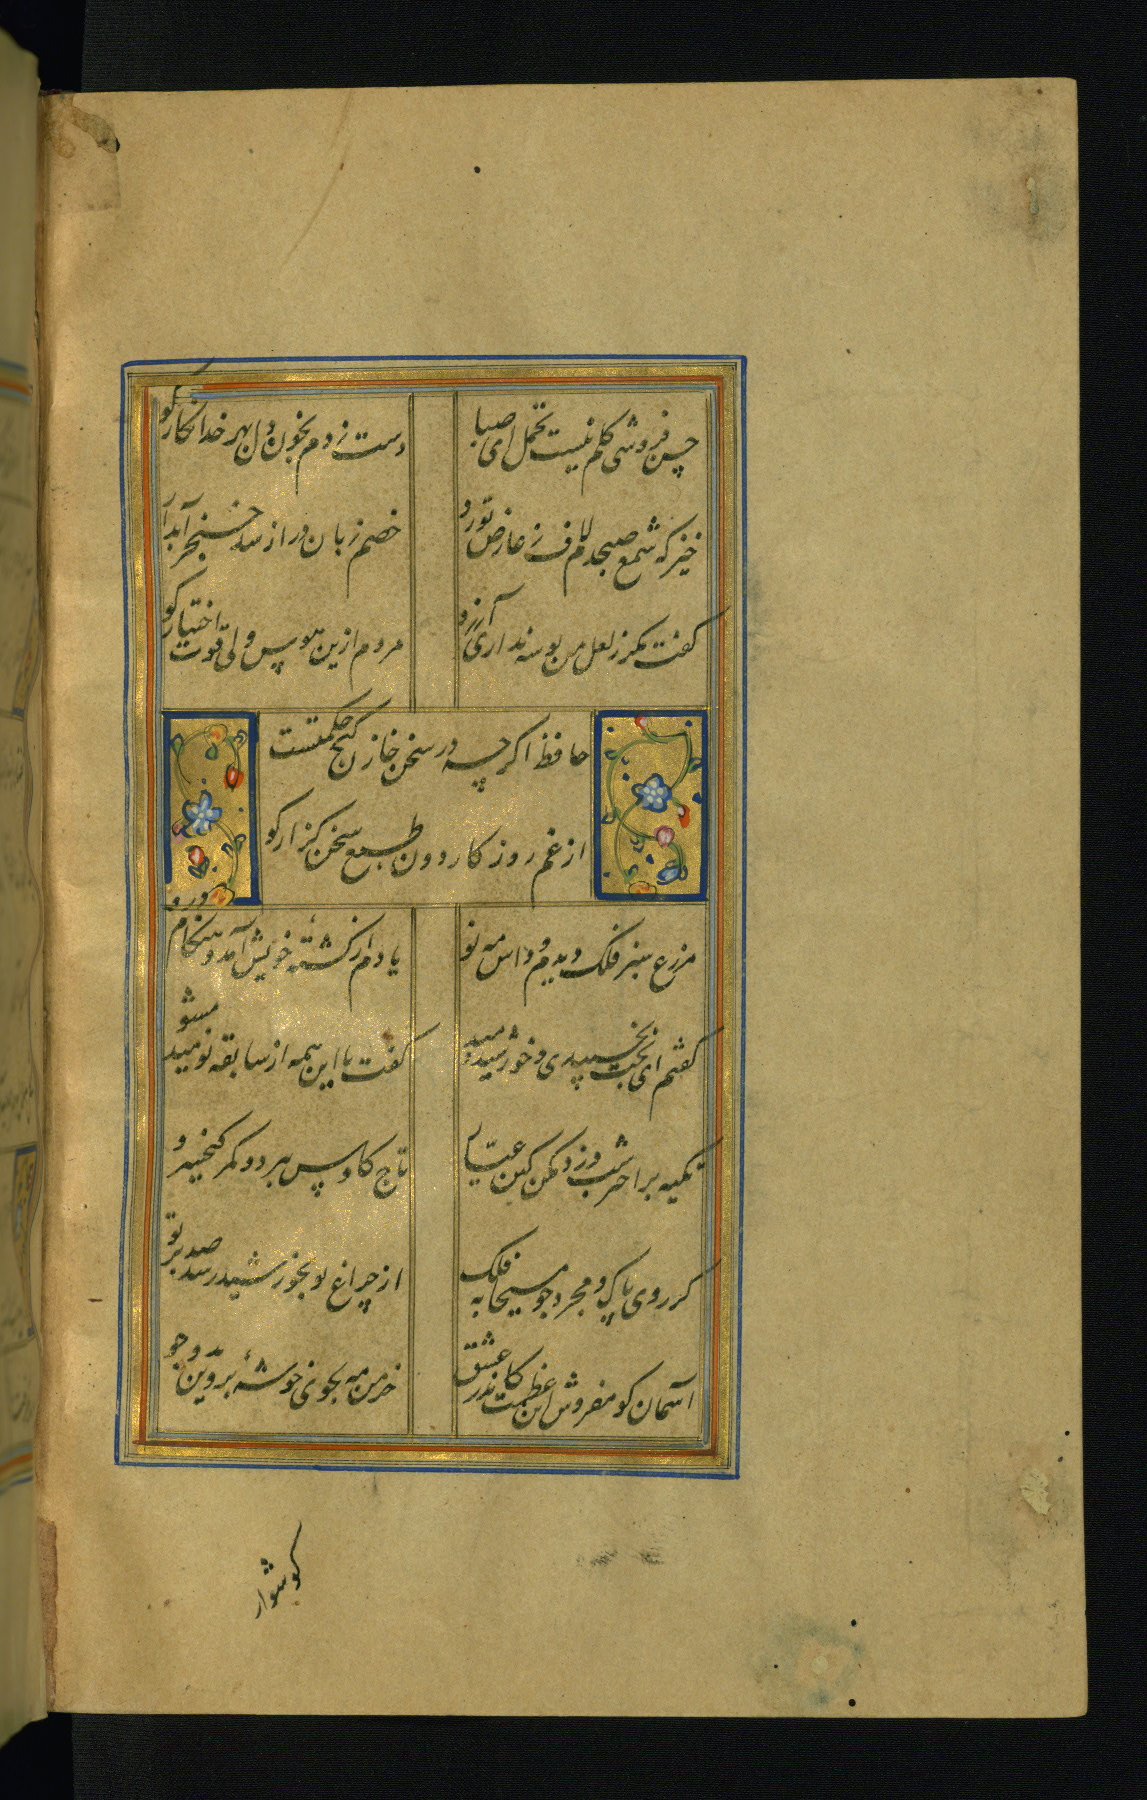 حسن فروشی کلم نیست تحمل ای صبا
دست زدم بخون دل بهر خدا نکار کو
خیز که شمع صبحدم لاف ز عارض تو زد
خصم زبان دراز شد خنجر آبدار
کفت مکر ز لعل من بوسه نداری آرزو
مردم ازین هوس ولی قوت اختیار کو
حافظ اکر چه در سخن خازن کنج حکمتست
از غم روزکار دون طبع سخن کزار کو
مزرع سبز فلک دیدم و داس مه نو
یادم از کشته خویش آمد و هنکام درو
کفتم ای بخت بخسپیدی و خورشید دمید
کفت با این همه از سابقه نومید مشو
تکیه بر اختر شب دزد مکن کین عیار
تاج کاوس ببرد و کمر کیخسرو
کر روی پاک و مجرد چو مسیحا به فلک
از چراغ تو بخورشید رسد صد پرتو
آسمان کو مفروش این عظمت کاندر عشق
خرمن مه بجوی خوشه پروین بدو جو
کوشوار